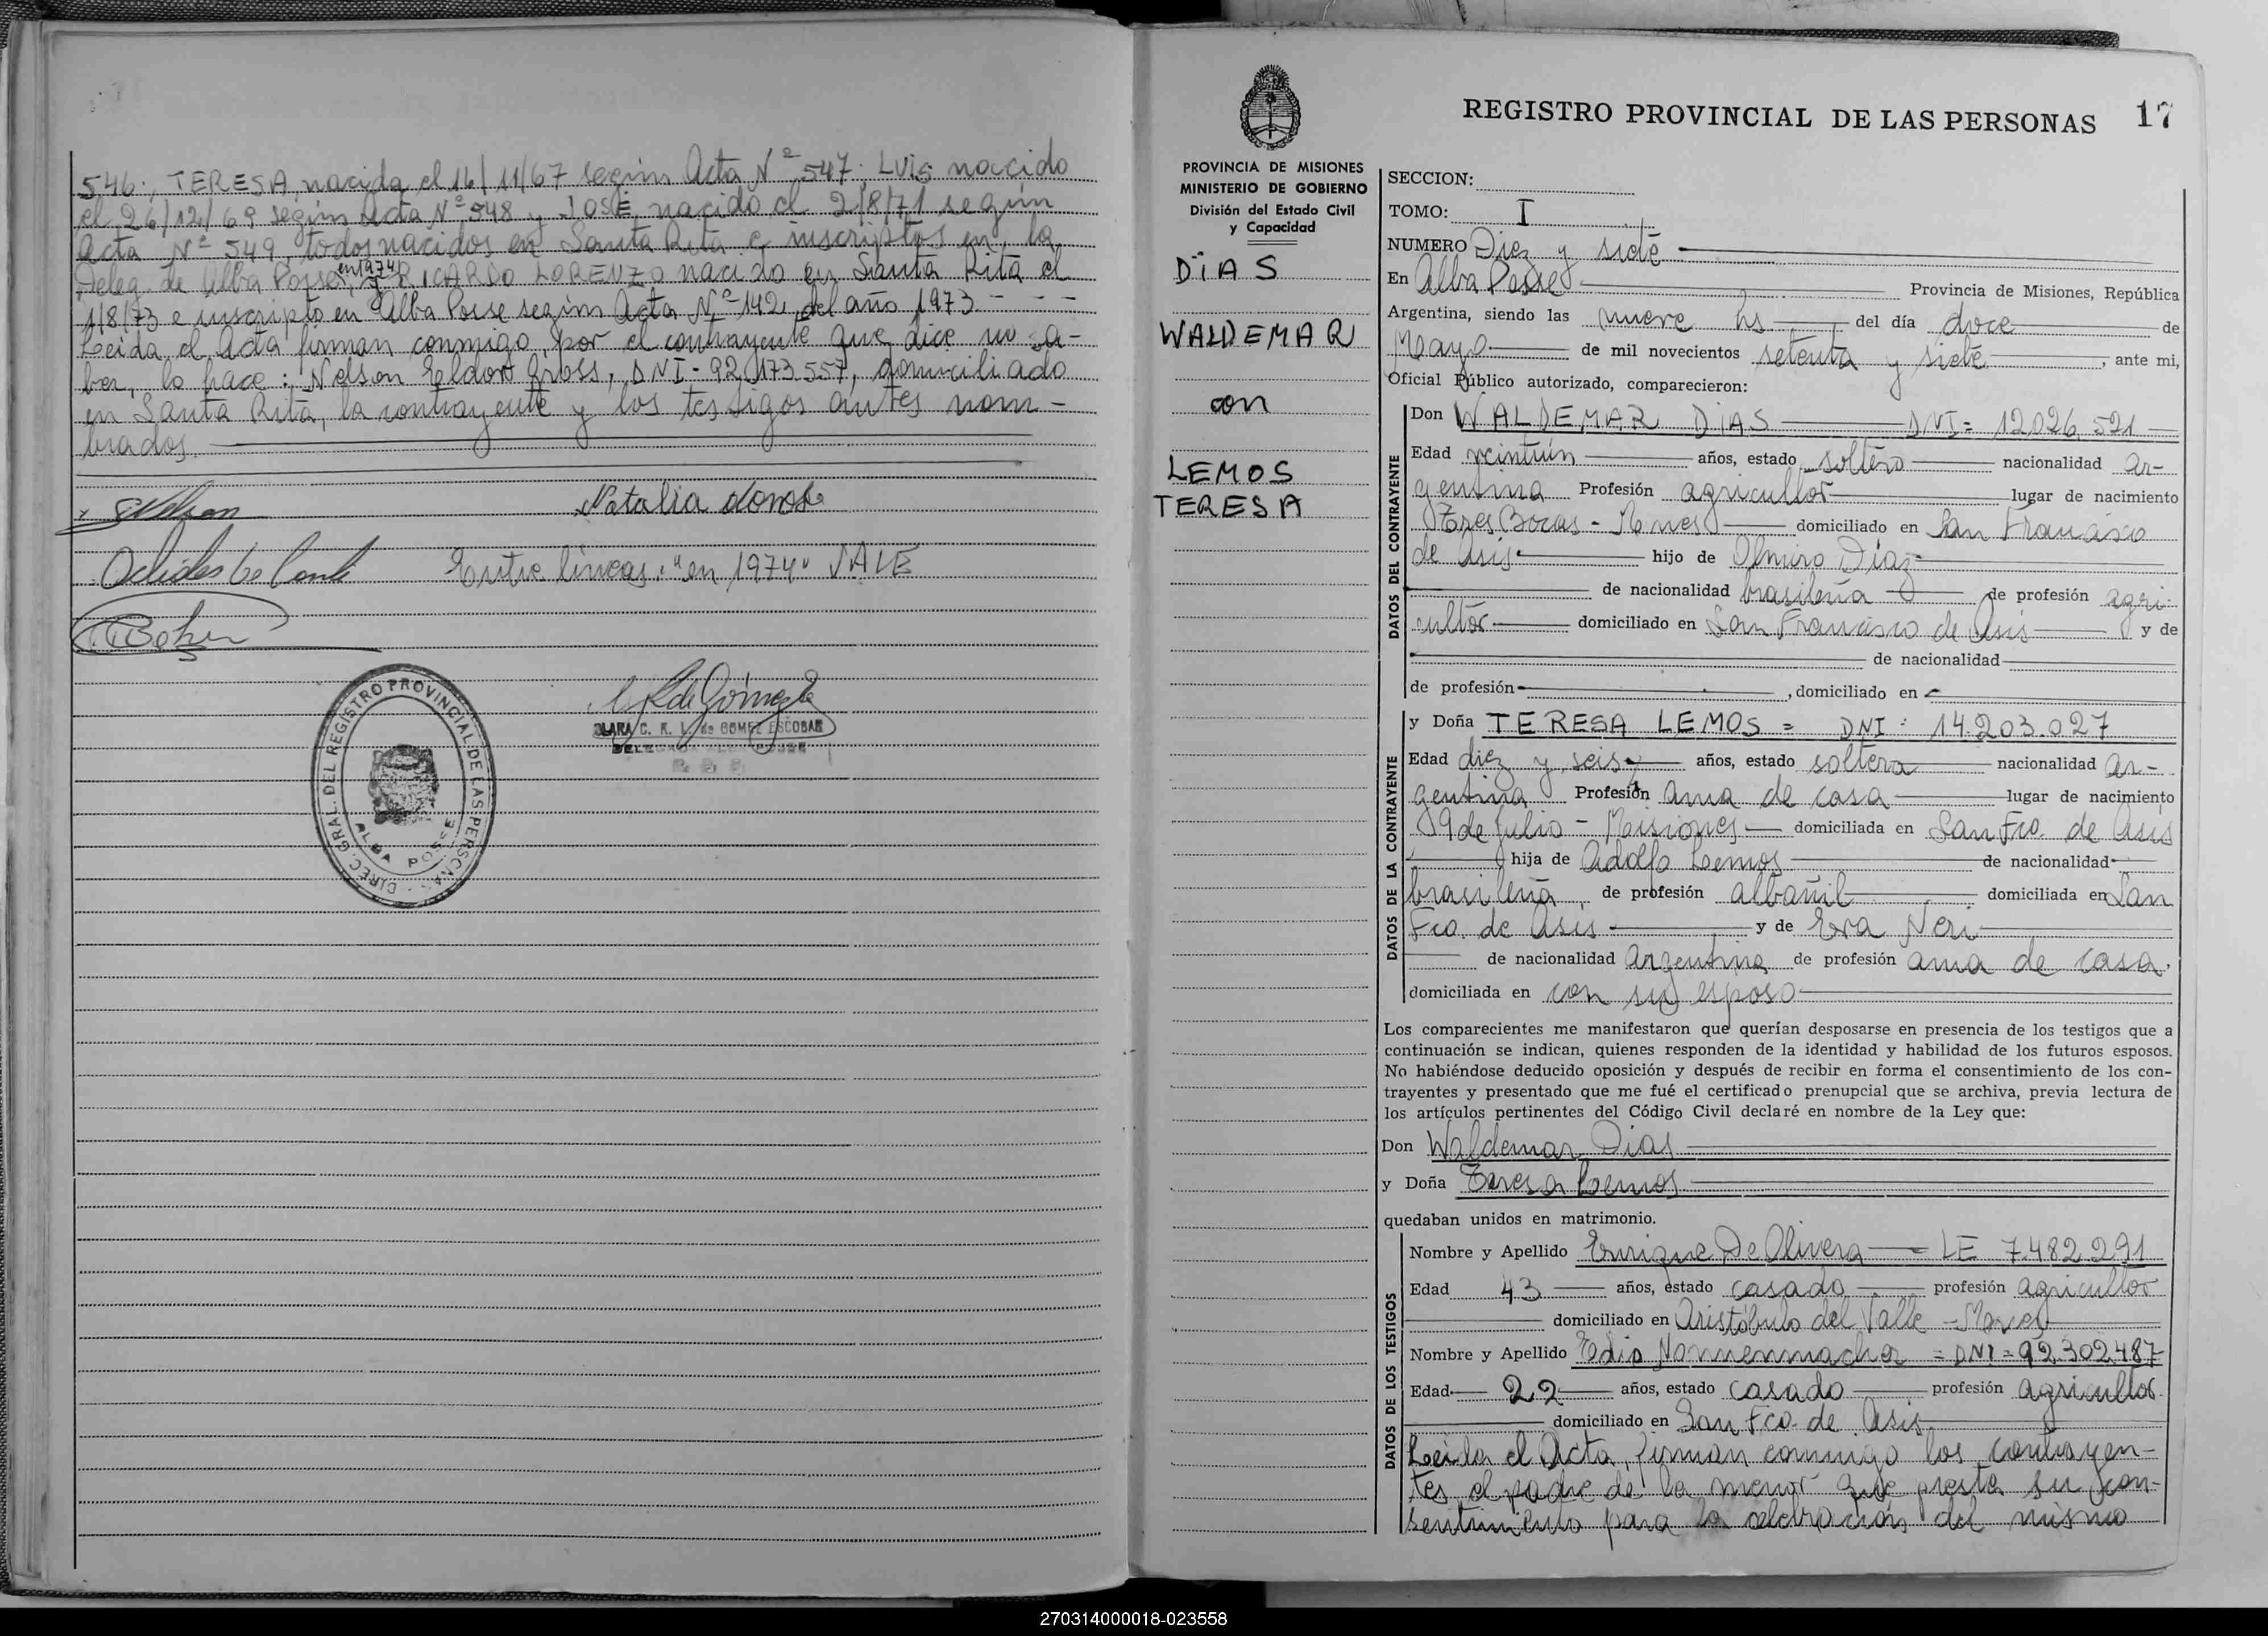 546; TERESA nacida el 16/11/67 según Acta Nº 547; LUIS nacido
el 26/12/69 según Acta Nº 548 y JOSÉ, nacido el 2/8/71 según
Acta Nº 549, todos nacidos en Santa Rita e inscriptos en la
Deleg. de Alba Posse, en 1974 y RICARDO LORENZO nacido en Santa Rita el
1/8/73 e inscripto en Alba Posse según Acta Nº 142 del año 1973 - - -
Leida el Acta firman conmigo, por el contrayente que dice no sa-
ber, lo hace: Nelson Eldor Gross, DNI- 92.173.557, domiciliado
en Santa Rita, la contrayente y los testigos antes nom-
brados.
Natalia
Entre líneas: "en 1974" VALE
DIREC. GRAL. DEL REGISTRO PROVINCIAL DE LAS PERSONAS
ALBA POSSE
CLARA C. K. L. de GOMEZ ESCOBAR
REGISTRO PROVINCIAL DE LAS PERSONAS 17
PROVINCIA DE MISIONES
MINISTERIO DE GOBIERNO
División del Estado Civil
y Capacidad
DIAS
WALDEMAR
con
LEMOS
TERESA
SECCION:
TOMO: I
NUMERO Diez y siete
En Alba Posse Provincia de Misiones, República
Argentina, siendo las nueve hs del día doce de
Mayo de mil novecientos setenta y siete, ante mi,
Oficial Público autorizado, comparecieron:
DATOS DEL CONTRAYENTE
Don WALDEMAR DIAS DNI= 12.026.521
Edad veintiún años, estado soltero nacionalidad ar-
gentina Profesión agricultor lugar de nacimiento
Tres Bocas - Mnes domiciliado en San Francisco
de Asis hijo de Olmiro Díaz
de nacionalidad brasileña de profesión agri-
cultor domiciliado en San Francisco de Asis y de
de nacionalidad
de profesión , domiciliado en
DATOS DE LA CONTRAYENTE
y Doña TERESA LEMOS = DNI: 14.203.027
Edad diez y seis años, estado soltera nacionalidad ar-
gentina Profesión ama de casa lugar de nacimiento
9 de Julio - Misiones domiciliada en San Fco. de Asis
hija de Adolfo Lemos de nacionalidad
brasileña de profesión albañil domiciliada en San
Fco. de Asis y de Eva Neri
de nacionalidad Argentina de profesión ama de casa,
domiciliada en con su esposo
Los comparecientes me manifestaron que querían desposarse en presencia de los testigos que a
continuación se indican, quienes responden de la identidad y habilidad de los futuros esposos.
No habiéndose deducido oposición y después de recibir en forma el consentimiento de los con-
trayentes y presentado que me fué el certificado prenupcial que se archiva, previa lectura de
los artículos pertinentes del Código Civil declaré en nombre de la Ley que:
Don Waldemar Dias
y Doña Teresa Lemos
quedaban unidos en matrimonio.
DATOS DE LOS TESTIGOS
Nombre y Apellido Enrique De Olivera LE 7.482.291
Edad 43 años, estado casado profesión agricultor
domiciliado en Aristóbulo del Valle - Mnes
Nombre y Apellido Edio Nonnenmacher = DNI = 92.302.487
Edad 22 años, estado casado profesión agricultor
domiciliado en San Fco. de Asis
Leida el Acta, firman conmigo los contrayen-
tes el padre de la menor que presta su con-
sentimiento para la celebración del mismo
270314000018-023558